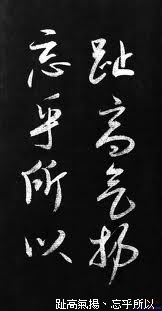 趾高氣揚
忘乎所以
趾高氣揚、忘乎所以